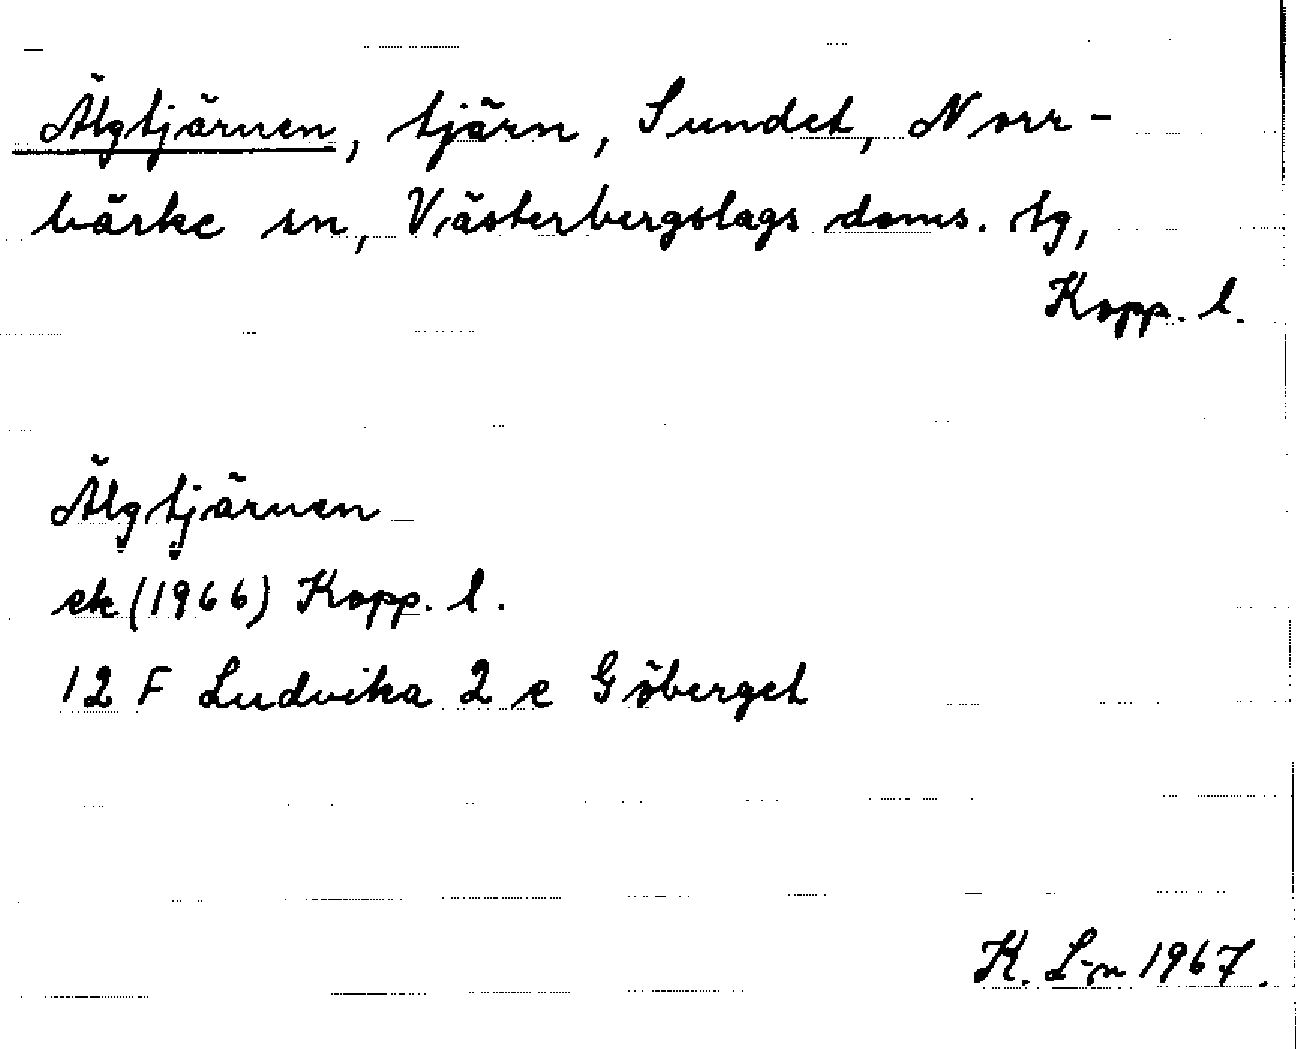 Älgtjärnen, tjärn, Sundet, Norr-
bärke sn, Västerbergslags doms. tg,
Kopp. l.
Älgtjärnen
ek (1966) Kopp. l.
12 F Ludvika 2 e Göberget
K. L-n 1967.